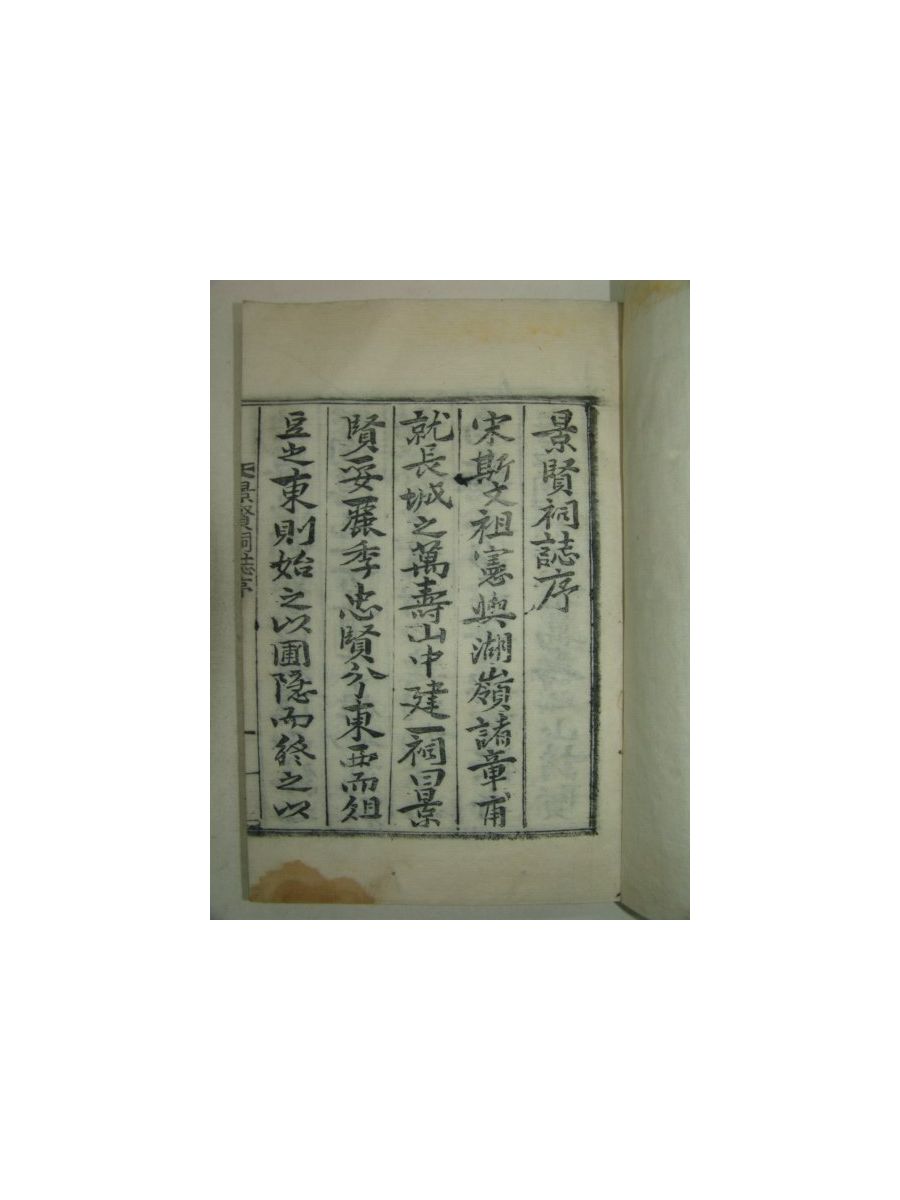 景賢祠誌序
宋斯文祖憲與湖嶺諸章甫
就長城之萬壽山中建一祠曰景
賢妥麗季忠賢分東西而俎
豆之東則始之以圃隱而終之以
景賢祠誌序